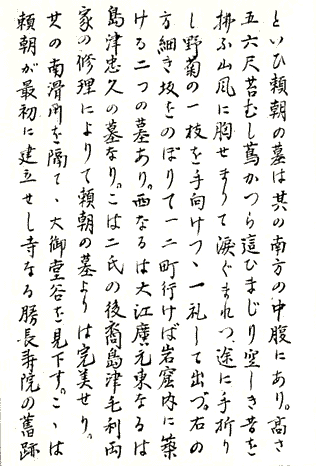 といひ頼朝の墓は其の南方の中腹にあり。高さ
五六尺苔むし蔦かつら這ひまじり空しき昔を
拂ふ山風に胸せまりて涙ぐまれつ、途に手折り
し野菊の一枝を手向けつゝ一礼して出づ。右の
方細き坂をのぼりて一二町行けば岩窟内に築
ける二つの墓あり。西なるは大江廣元東なるは
島津忠久の墓なり。こは二氏の後裔島津毛利両
家の修理によりて頼朝の墓よりは完美せり。
其の南滑川を隔てゝ大御堂谷を見下す。こゝは
頼朝が最初に建立せし寺なる勝長寿院の舊跡